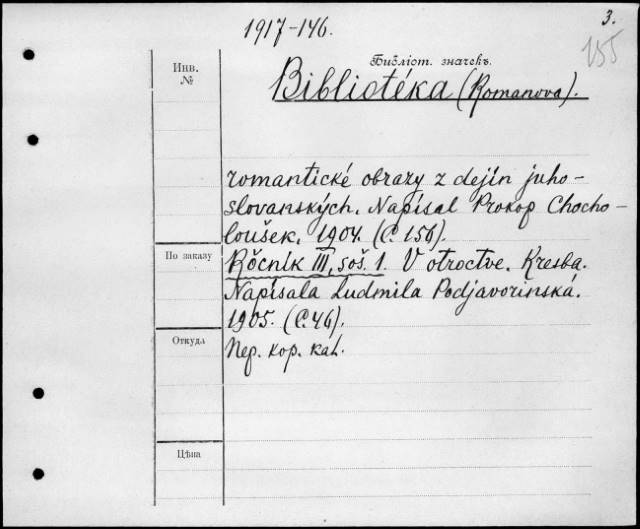 3.
1917-146.
155
Инв.
№
Библіот. значекъ.
Bibliotéka (Romanova).
romantické obrazy z dejín juho-
slovanských. Napísal Prokop Chocho-
loušek. 1904. (C. 156).
По заказу
Ročník III, soš. 1. V otroctve. Kresba.
Napísala Ludmila Podjavorinská.
1905. (C. 46).
Откуда
Пер. кор. кал.
Цѣна